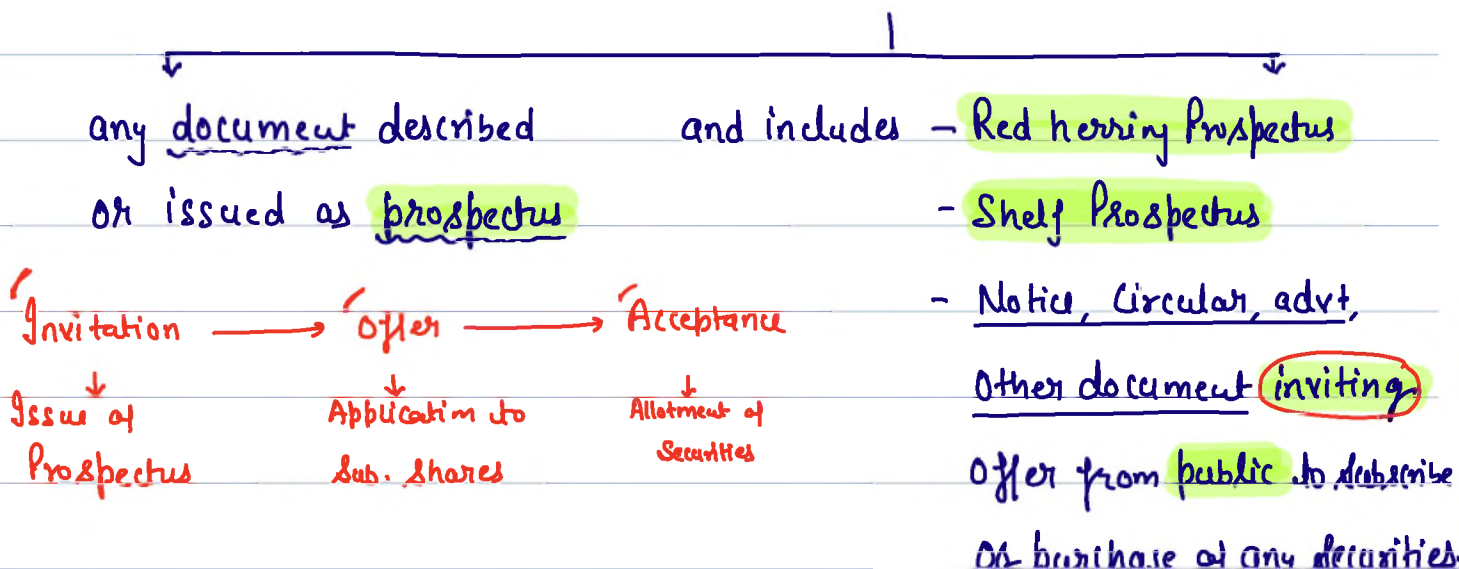 any document described
or issued as prospectus
and includes - Red herring Prospectus
- Shelf Prospectus
- Notice, Circular, advt,
Other document inviting
Offer from public to subscribe
or purchase of any securities.
Invitation → Offer → Acceptance
Issue of
Prospectus
Application to
Sub. Shares
Allotment of
Securities